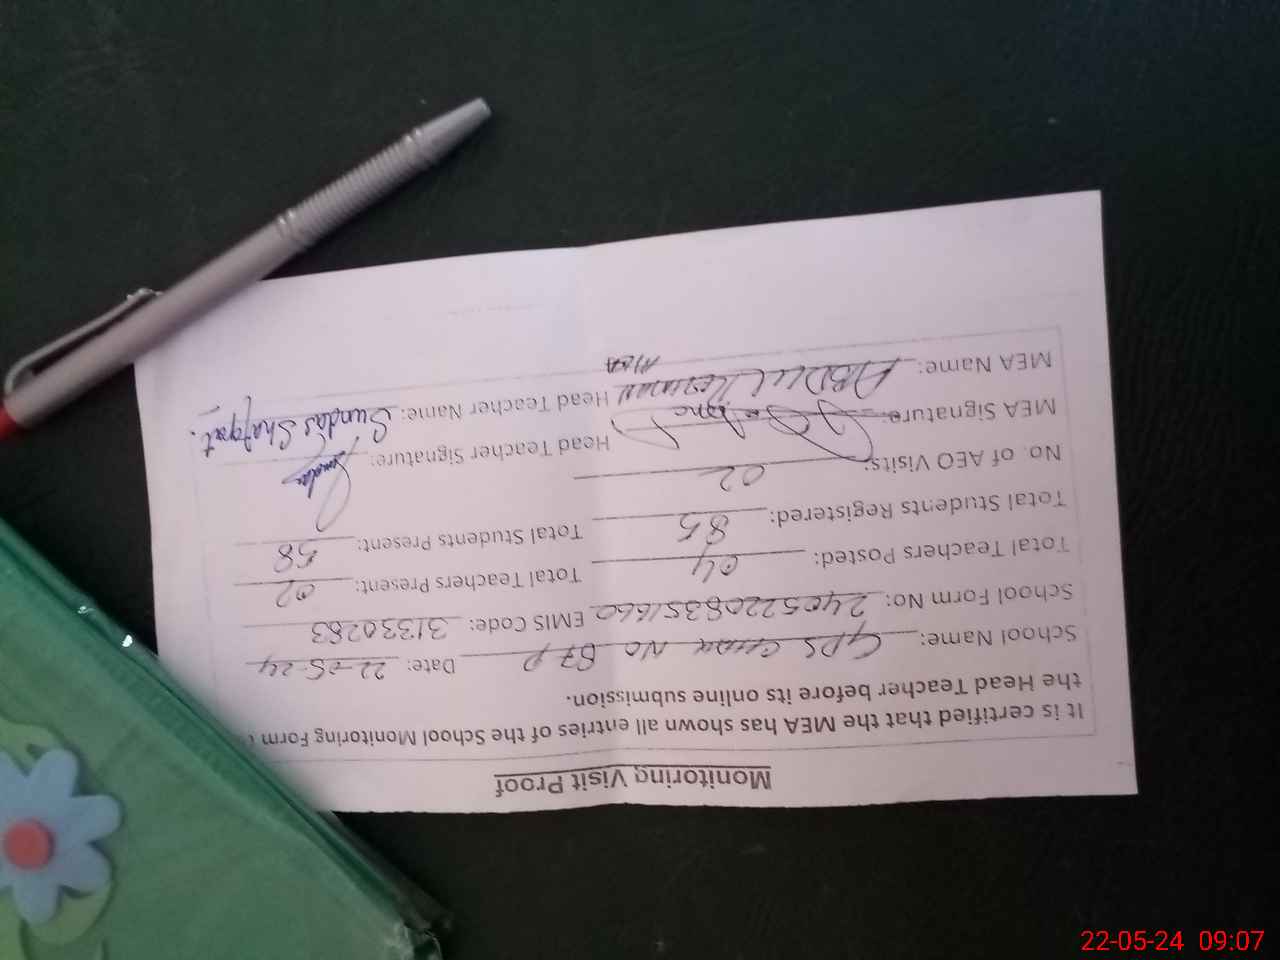 Monitoring Visit Proof
It is certified that the MEA has shown all entries of the School Monitoring Form
the Head Teacher before its online submission.
School Name: GPS Chak No 67 P Date: 22-05-24
School Form No: 24052208351660 EMIS Code: 31330283
Total Teachers Posted: 04 Total Teachers Present: 02
Total Students Registered: 85 Total Students Present: 58
No. of AEO Visits: 02
MEA Signature: Head Teacher Signature:
MEA Name: ABDUL Head Teacher Name: Sundas Shafqat.
22-05-24 09:07